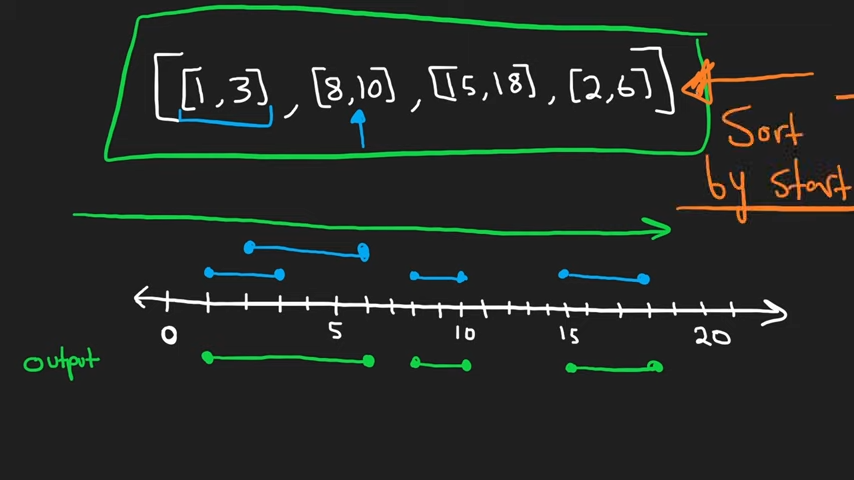 [[1,3], [8,10], [15,18], [2,6]]
Sort
by start
0 5 10 15 20
output